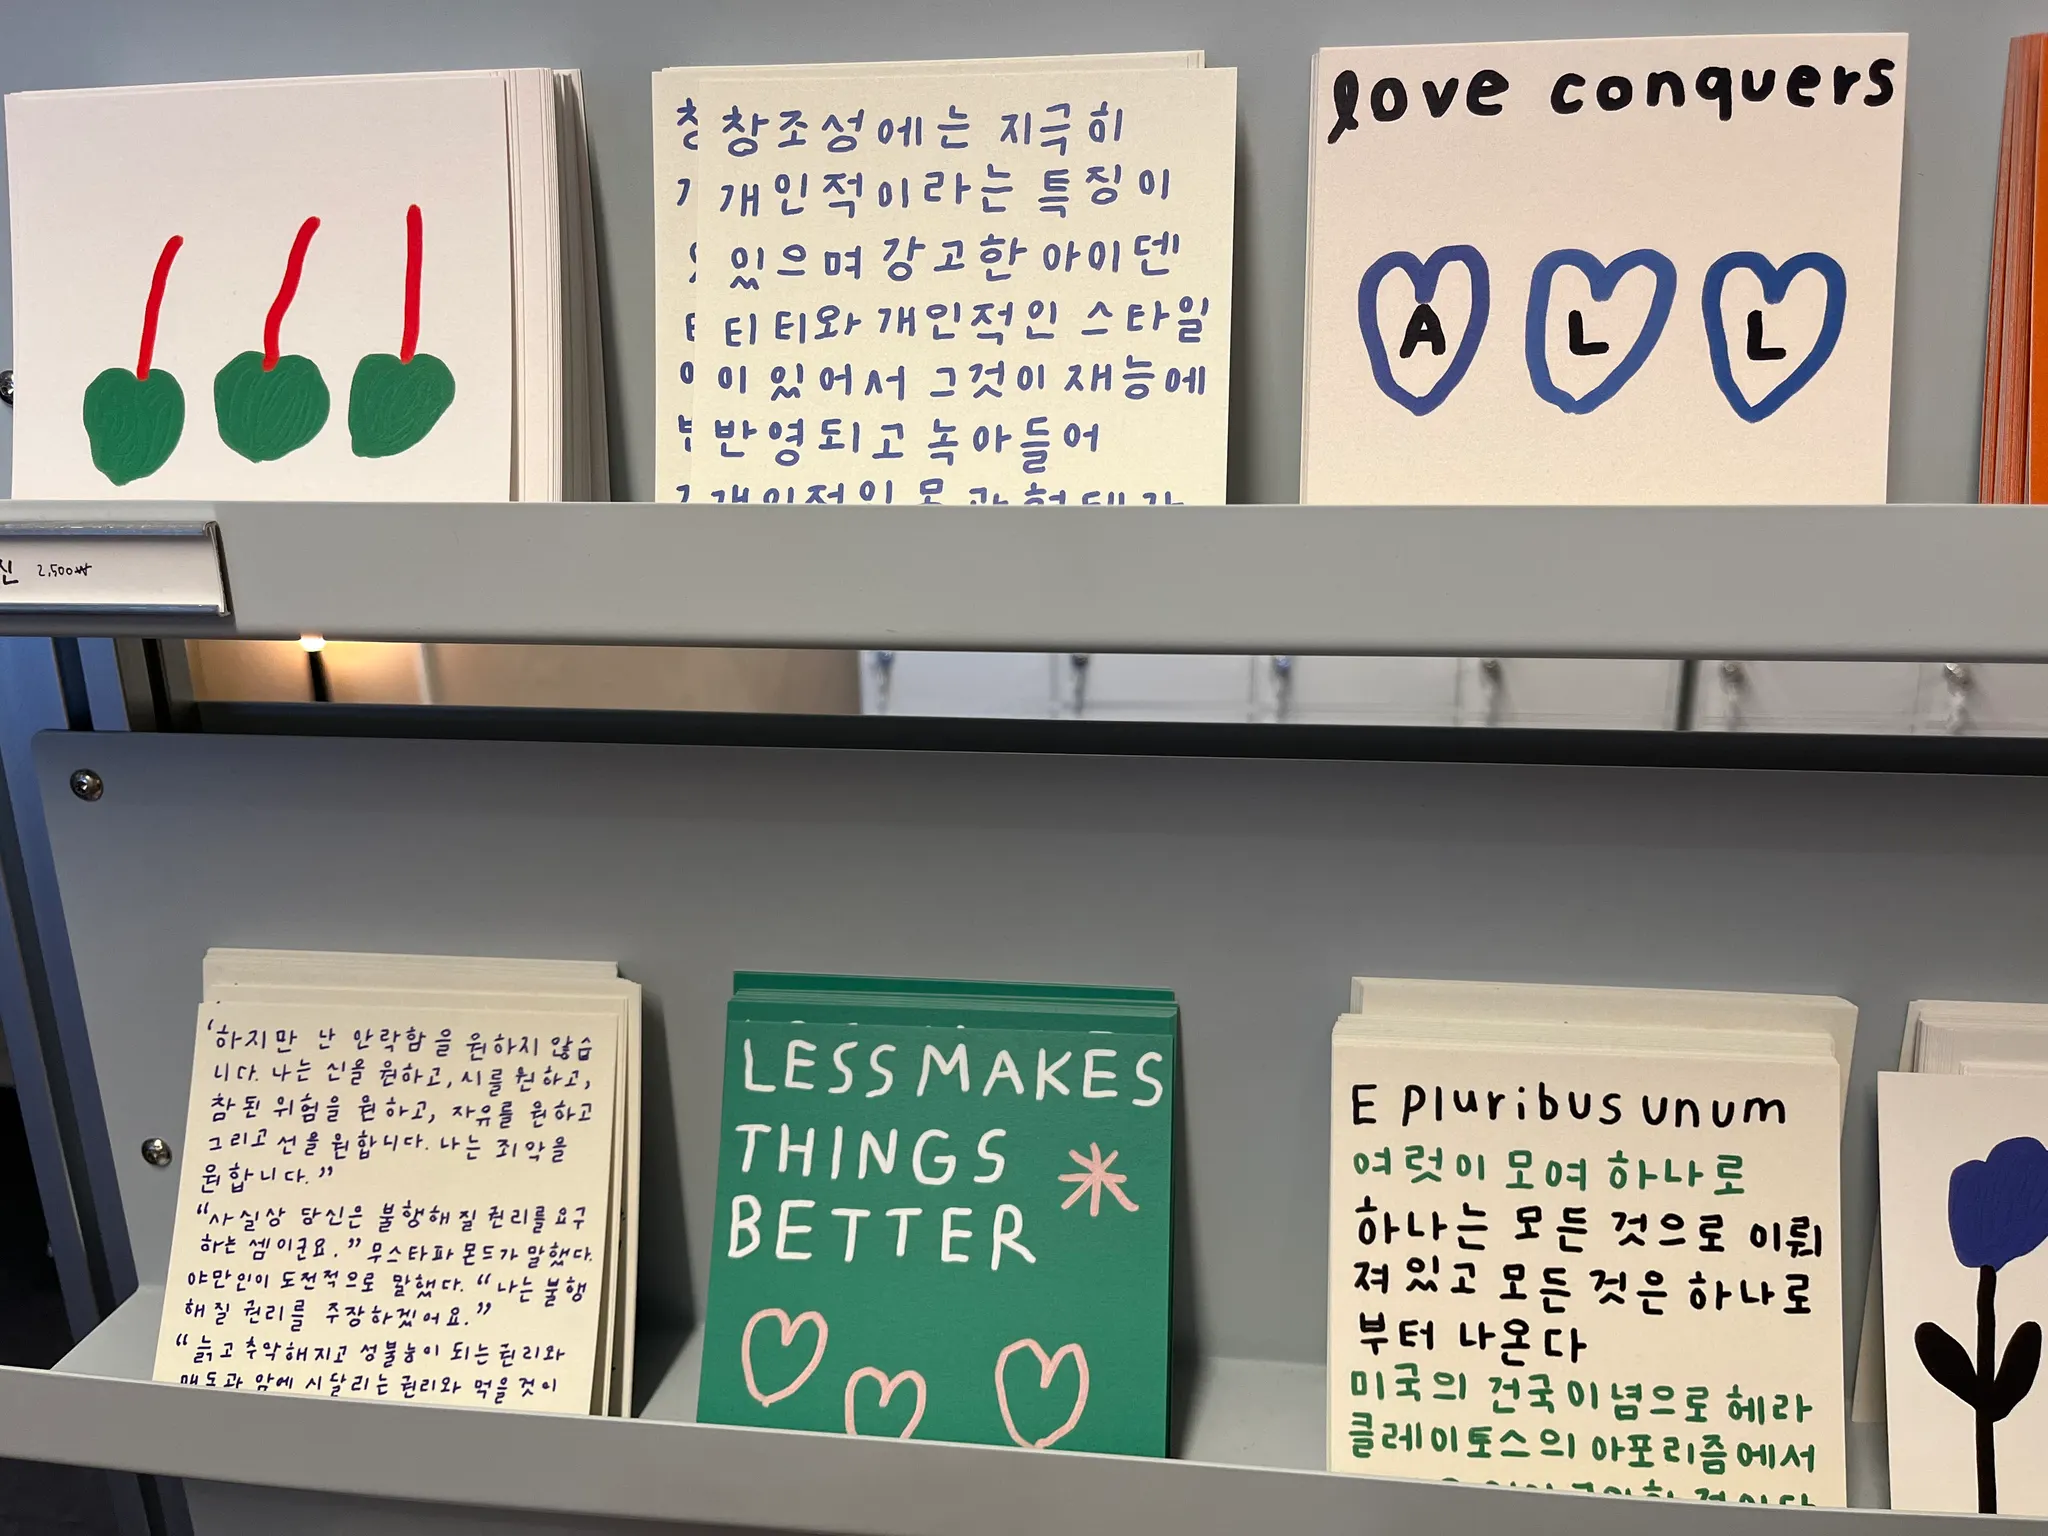 창조성에는 지극히
개인적이라는 특징이
있으며 강고한 아이덴
티티와 개인적인 스타일
이 있어서 그것이 재능에
반영되고 녹아들어
love conquers
A L L
2,500₩
‘하지만 난 안락함을 원하지 않습
니다. 나는 신을 원하고, 시를 원하고,
참된 위험을 원하고, 자유를 원하고
그리고 선을 원합니다. 나는 죄악을
원합니다.”
“사실상 당신은 불행해질 권리를 요구
하는 셈이군요.” 무스타파 몬드가 말했다.
야만인이 도전적으로 말했다. “나는 불행
해질 권리를 주장하겠어요.”
“늙고 추악해지고 성불능이 되는 권리와
매독과 암에 시달리는 권리와 먹을 것이
LESS MAKES
THINGS
BETTER
E pluribus unum
여럿이 모여 하나로
하나는 모든 것으로 이뤄
져있고 모든 것은 하나로
부터 나온다
미국의 건국이념으로 헤라
클레이토스의 아포리즘에서